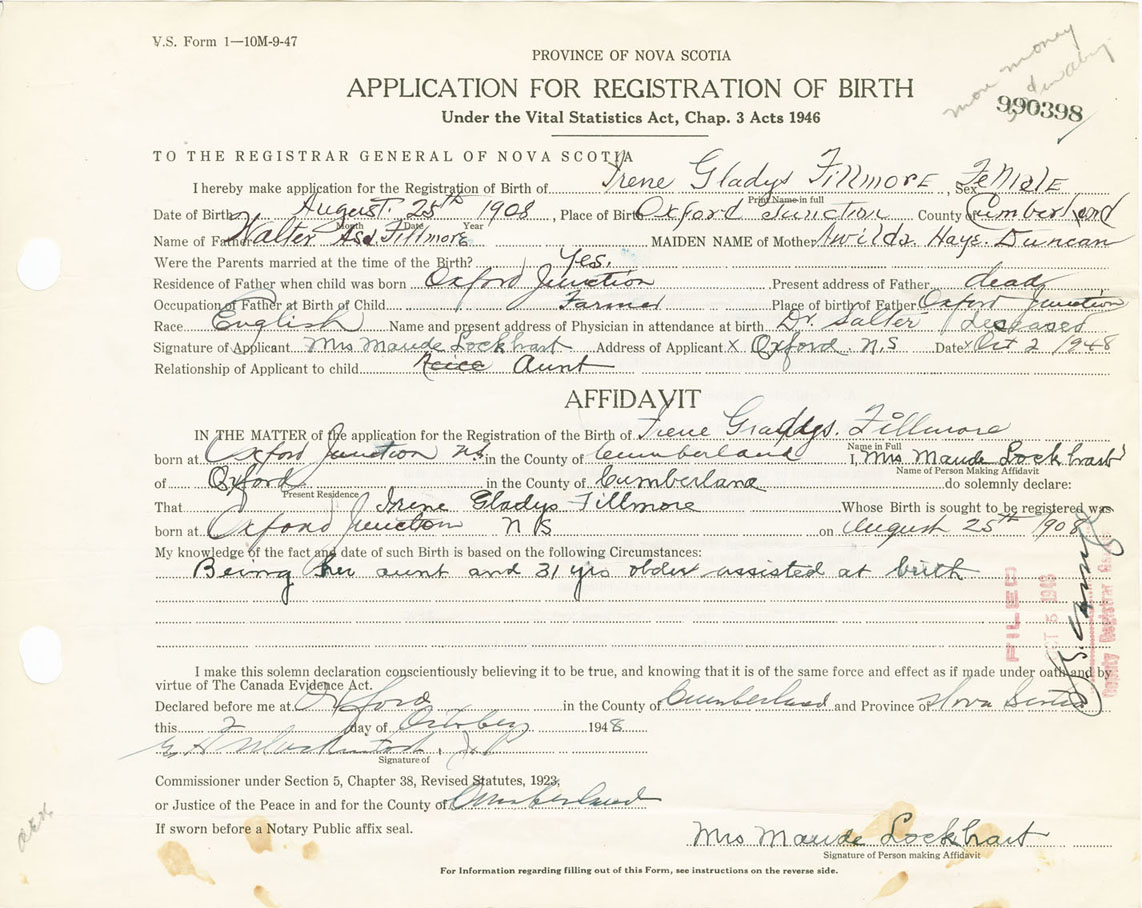 V.S. Form 1—10M-9-47
more money
990398
PROVINCE OF NOVA SCOTIA
APPLICATION FOR REGISTRATION OF BIRTH
Under the Vital Statistics Act, Chap. 3 Acts 1946
TO THE REGISTRAR GENERAL OF NOVA SCOTIA
I hereby make application for the Registration of Birth of Irene Gladys Fillmore, Sex Female
Print Name in full
Date of Birth August 25th 1908, Place of Birth Oxford Junction County of Cumberland
Month Date Year
Name of Father Walter Asa Fillmore MAIDEN NAME of Mother Awilda Haye Duncan
Were the Parents married at the time of the Birth? Yes.
Residence of Father when child was born Oxford Junction Present address of Father dead
Occupation of Father at Birth of Child Farmer Place of birth of Father Oxford Junction
Race English Name and present address of Physician in attendance at birth Dr. Salter deseased
Signature of Applicant Mrs Maude Lockhart Address of Applicant X Oxford N.S Date X Oct 2 1948
Relationship of Applicant to child Aunt
AFFIDAVIT
IN THE MATTER of the application for the Registration of the Birth of Irene Gladys Fillmore
Name in Full
born at Oxford Junction N.S. in the County of Cumberland I, Mrs Maude Lockhart
Name of Person Making Affidavit
of Oxford in the County of Cumberland do solemnly declare:
Present Residence
That Irene Gladys Fillmore Whose Birth is sought to be registered was
born at Oxford Junction NS on August 25th 1908
My knowledge of the fact and date of such Birth is based on the following Circumstances:
Being her aunt and 31 yrs older assisted at birth
FILED
I make this solemn declaration conscientiously believing it to be true, and knowing that it is of the same force and effect as if made under oath and by
virtue of The Canada Evidence Act.
Declared before me at Oxford in the County of Cumberland and Province of Nova Scotia
this 2 day of October 1948
J.P
Signature of
Commissioner under Section 5, Chapter 38, Revised Statutes, 1923,
or Justice of the Peace in and for the County of Cumberland
If sworn before a Notary Public affix seal.
Mrs Maude Lockhart
Signature of Person making Affidavit
For Information regarding filling out of this Form, see instructions on the reverse side.